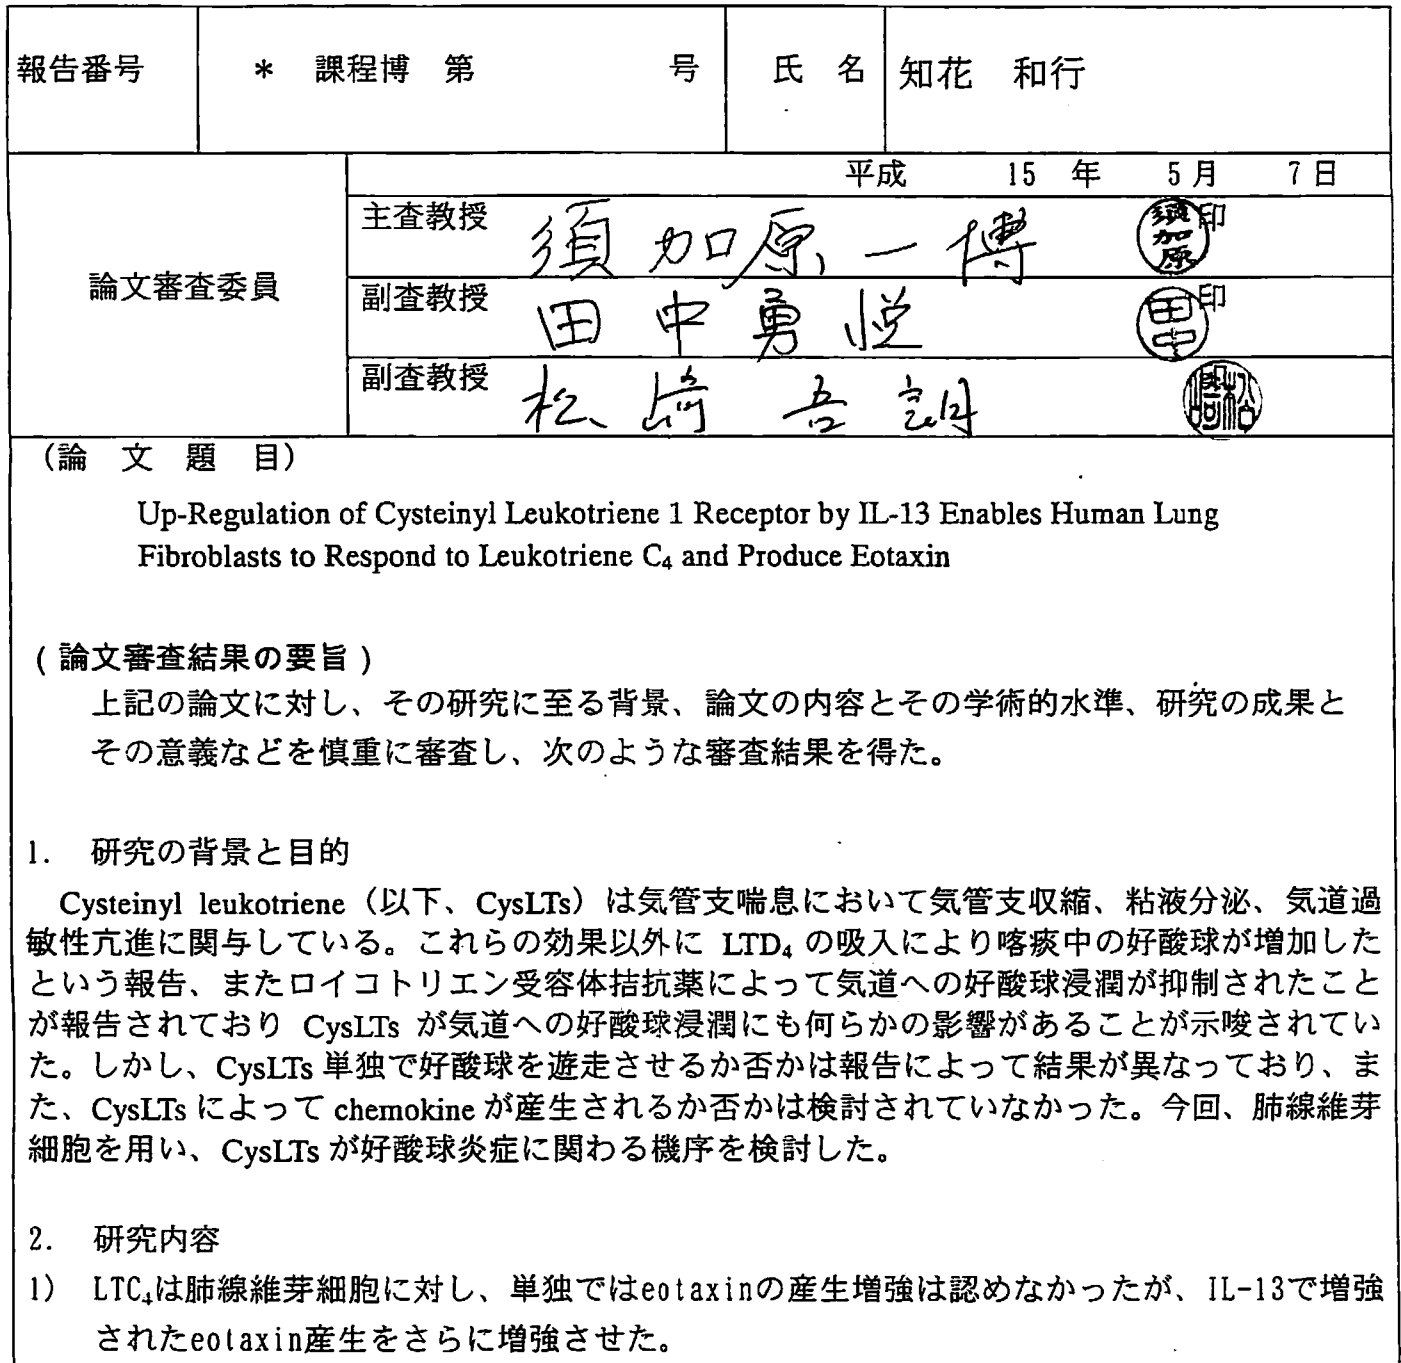 報告番号 * 課程博 第 号 氏 名 知花 和行
平成 15 年 5月 7日
論文審査委員
主査教授 須加原一博 印 須加原
副査教授 田中勇悦 印 田中
副査教授 松崎吾朗
(論 文 題 目)
Up-Regulation of Cysteinyl Leukotriene 1 Receptor by IL-13 Enables Human Lung
Fibroblasts to Respond to Leukotriene C₄ and Produce Eotaxin
(論文審査結果の要旨)
上記の論文に対し、その研究に至る背景、論文の内容とその学術的水準、研究の成果と
その意義などを慎重に審査し、次のような審査結果を得た。
1. 研究の背景と目的
Cysteinyl leukotriene（以下、CysLTs）は気管支喘息において気管支収縮、粘液分泌、気道過
敏性亢進に関与している。これらの効果以外に LTD₄ の吸入により喀痰中の好酸球が増加した
という報告、またロイコトリエン受容体拮抗薬によって気道への好酸球浸潤が抑制されたこと
が報告されており CysLTs が気道への好酸球浸潤にも何らかの影響があることが示唆されてい
た。しかし、CysLTs 単独で好酸球を遊走させるか否かは報告によって結果が異なっており、ま
た、CysLTs によって chemokine が産生されるか否かは検討されていなかった。今回、肺線維芽
細胞を用い、CysLTs が好酸球炎症に関わる機序を検討した。
2. 研究内容
1) LTC₄は肺線維芽細胞に対し、単独ではeotaxinの産生増強は認めなかったが、IL-13で増強
されたeotaxin産生をさらに増強させた。